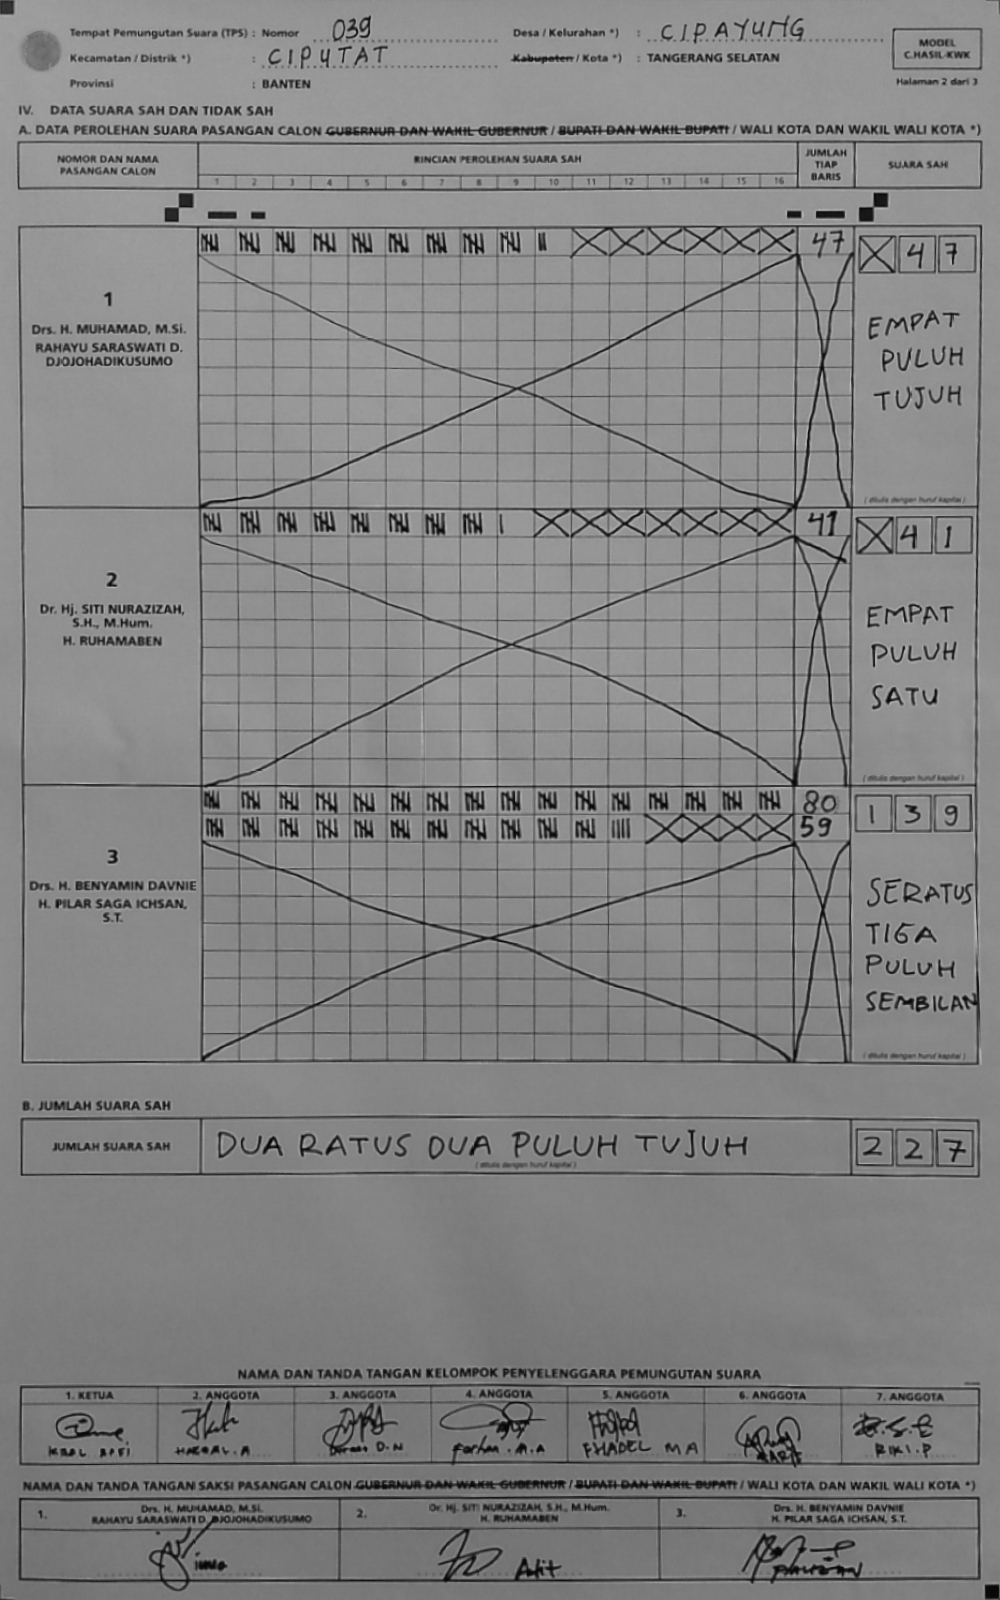 Tempat Pemungutan Suara (TPS) : Nomor 039 Desa / Kelurahan *) : CIPAYUNG
Kecamatan / Distrik *) : CIPUTAT Kabupaten / Kota *) : TANGERANG SELATAN
Provinsi : BANTEN
MODEL
C.HASIL-KWK
Halaman 2 dari 3
IV. DATA SUARA SAH DAN TIDAK SAH
A. DATA PEROLEHAN SUARA PASANGAN CALON GUBERNUR DAN WAKIL GUBERNUR / BUPATI DAN WAKIL BUPATI / WALI KOTA DAN WAKIL WALI KOTA *)
NOMOR DAN NAMA
PASANGAN CALON
RINCIAN PEROLEHAN SUARA SAH
1 2 3 4 5 6 7 8 9 10 11 12 13 14 15 16
JUMLAH
TIAP
BARIS
SUARA SAH
1
Drs. H. MUHAMAD, M.Si.
RAHAYU SARASWATI D.
DJOJOHADIKUSUMO
47
X 4 7
EMPAT
PULUH
TUJUH
( ditulis dengan huruf kapital )
2
Dr. Hj. SITI NURAZIZAH,
S.H., M.Hum.
H. RUHAMABEN
41
X 4 1
EMPAT
PULUH
SATU
( ditulis dengan huruf kapital )
3
Drs. H. BENYAMIN DAVNIE
H. PILAR SAGA ICHSAN,
S.T.
80
59
1 3 9
SERATUS
TIGA
PULUH
SEMBILAN
( ditulis dengan huruf kapital )
B. JUMLAH SUARA SAH
JUMLAH SUARA SAH DUA RATUS DUA PULUH TUJUH 2 2 7
( ditulis dengan huruf kapital )
NAMA DAN TANDA TANGAN KELOMPOK PENYELENGGARA PEMUNGUTAN SUARA
1. KETUA 2. ANGGOTA 3. ANGGOTA 4. ANGGOTA 5. ANGGOTA 6. ANGGOTA 7. ANGGOTA
D.N Farhan . M.A FHADEL MA RIKI.P
NAMA DAN TANDA TANGAN SAKSI PASANGAN CALON GUBERNUR DAN WAKIL GUBERNUR / BUPATI DAN WAKIL BUPATI / WALI KOTA DAN WAKIL WALI KOTA *)
1. Drs. H. MUHAMAD, M.Si.
RAHAYU SARASWATI D. DJOJOHADIKUSUMO
2. Dr. Hj. SITI NURAZIZAH, S.H., M.Hum.
H. RUHAMABEN
Adit
3. Drs. H. BENYAMIN DAVNIE
H. PILAR SAGA ICHSAN, S.T.